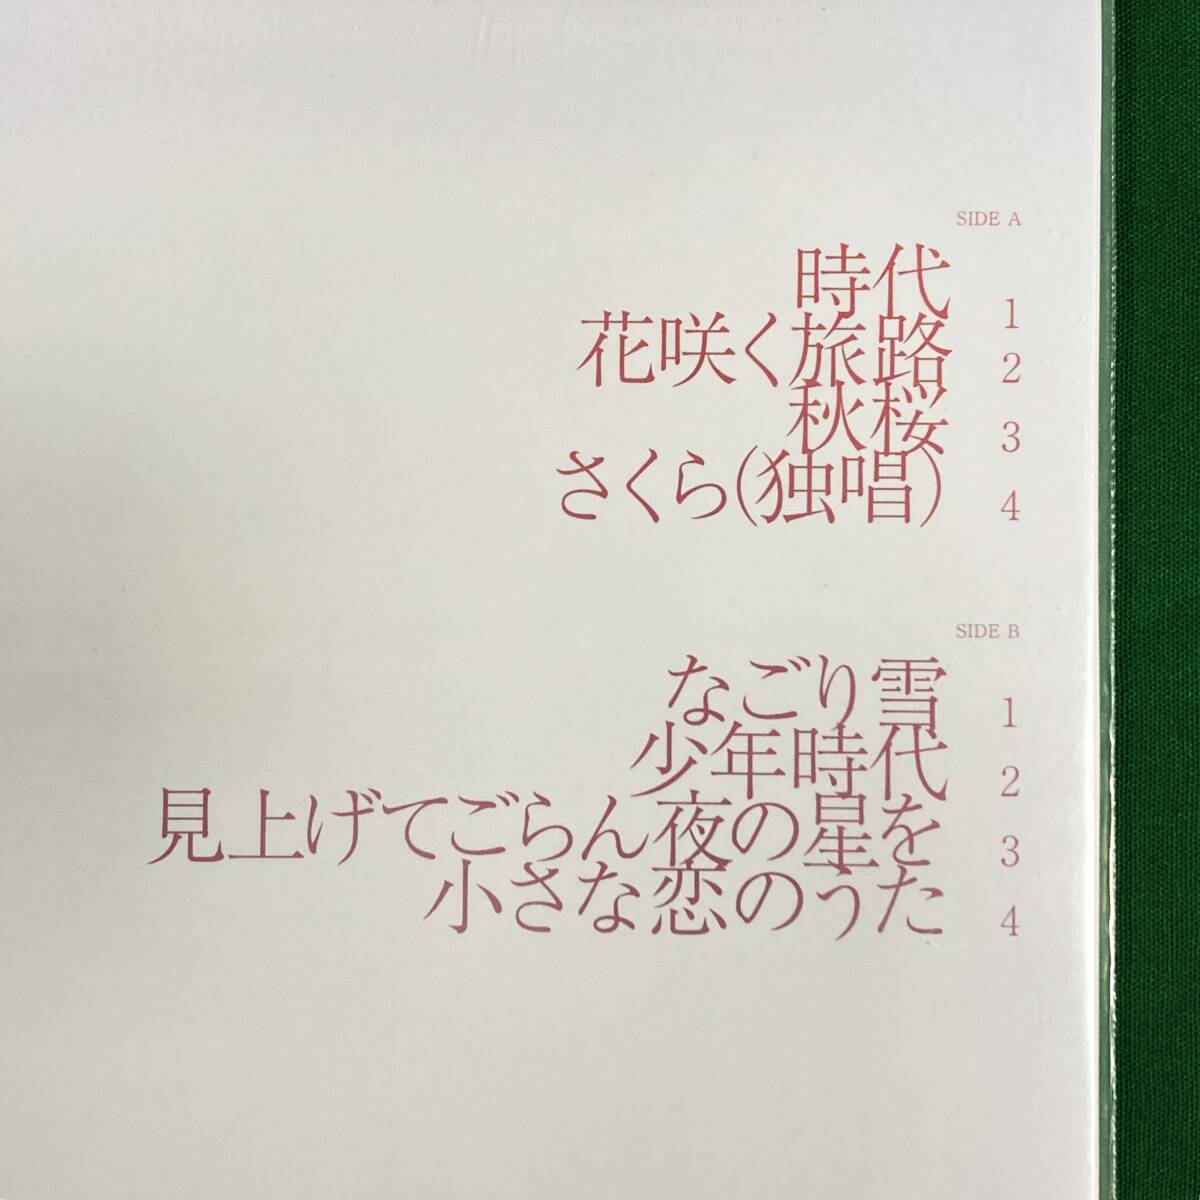 SIDE A
時代 1
花咲く旅路 2
秋桜 3
さくら(独唱) 4
SIDE B
なごり雪 1
少年時代 2
見上げてごらん夜の星を 3
小さな恋のうた 4